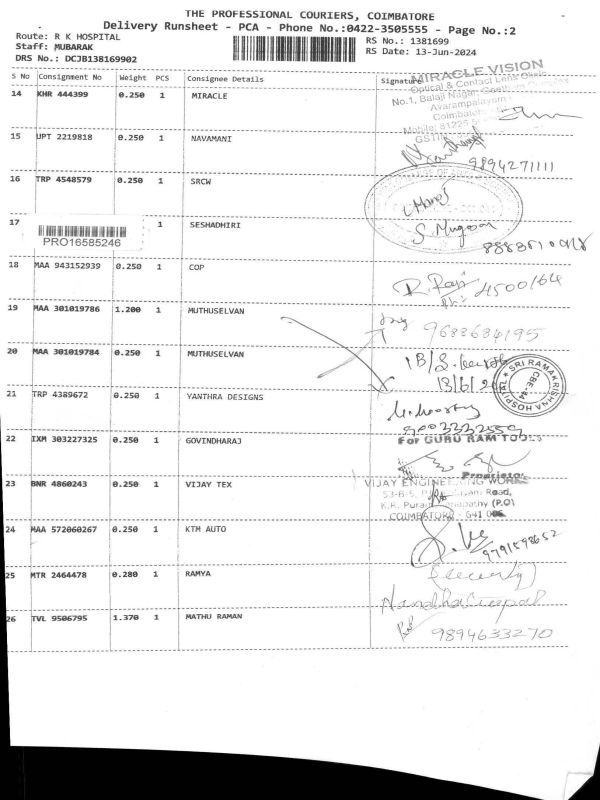 THE PROFESSIONAL COURIERS, COIMBATORE
Delivery Runsheet - PCA - Phone No.:0422-3505555 - Page No.:2
Route: R K HOSPITAL
RS No.: 1381699
Staff: MUBARAK
RS Date: 13-Jun-2024
DRS No.: DCJB138169902
S No Consignment No Weight PCS Consignee Details Signature
MIRACLE VISION
Optical & Contact Lens Clinic
No.1, Balaji Nagar,
Avarampalayam
Coimbatore
14 KHR 444399 0.250 1 MIRACLE
15 UPT 2219818 0.250 1 NAVAMANI
9894271111
16 TRP 4548579 0.250 1 SRCW
17 PRO16585246 1 SESHADHIRI
18 MAA 943152939 0.250 1 COP
19 MAA 301019786 1.200 1 MUTHUSELVAN
9688684195
20 MAA 301019784 0.250 1 MUTHUSELVAN
SRI RAMAKRISHNA HOSPITAL
CBE-44
21 TRP 4389672 0.250 1 YANTHRA DESIGNS
22 IXM 303227325 0.250 1 GOVINDHARAJ
For GURU RAM TOOLS
Proprietor
23 BNR 4860243 0.250 1 VIJAY TEX
VIJAY ENGINEERING WORKS
53-B-5, Road,
K.R. Puram (P.O)
COIMBATORE - 641 006
24 MAA 572060267 0.250 1 KTM AUTO
9791598652
25 MTR 2464478 0.280 1 RAMYA
(Security)
26 TVL 9506795 1.370 1 MATHU RAMAN
9894633270